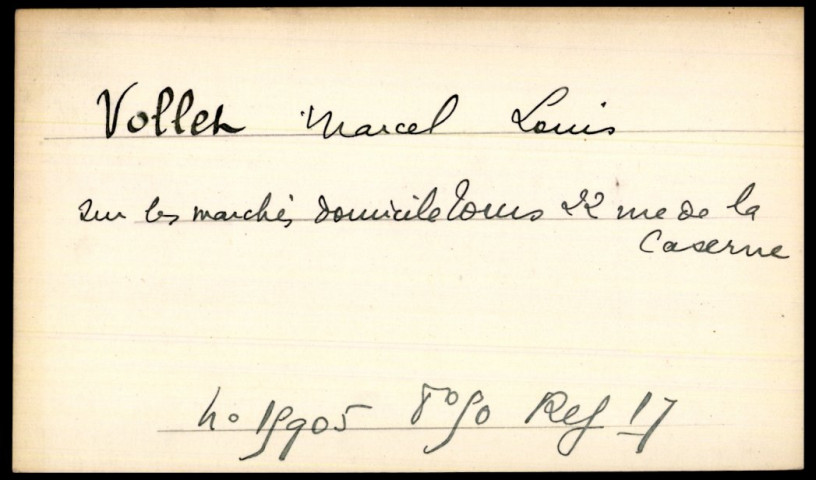 Vollet Marcel Louis
sur les marchés domicile Tours 22 rue de la
Caserne
no 15905 Ref 17